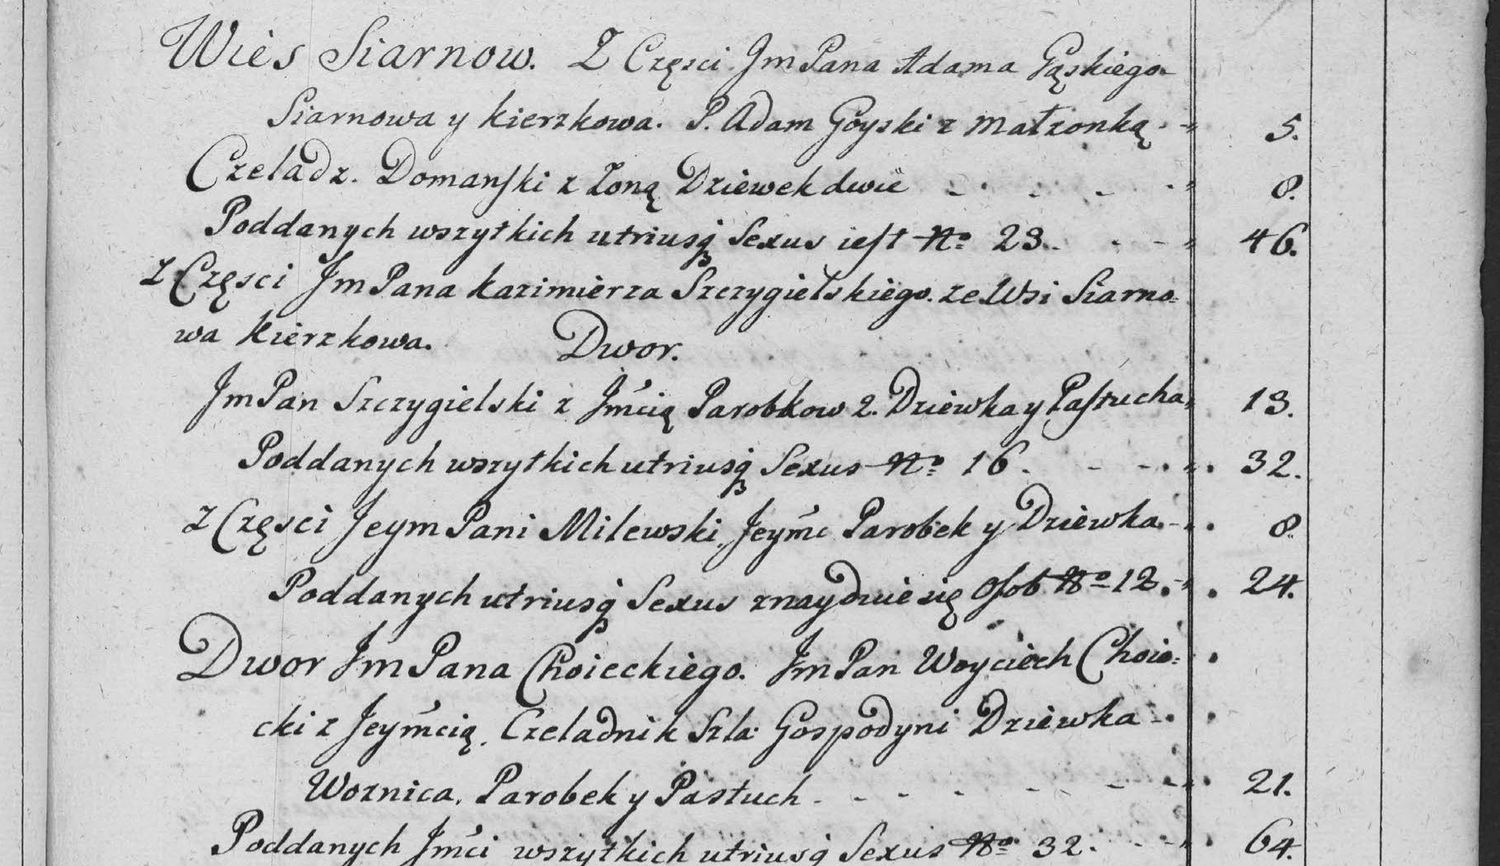 Wies Siarnow. Z Części Jm Pana Adama Gąskiego
Siarnowa y Kierzkowa. P. Adam Goyski z Matzonką 5.
Czeladz. Domanski z Zoną Dziewek dwie 8.
Poddanych wszytkich utriusq Sexus iest No 23. 46.
Z Części Jm Pana Kazimierza Szczygielskiego. ze Wsi Siarno=
wa Kierzkowa. Dwor.
Jm Pan Szczygielski z Jmcią Parobkow 2. Dziewka y Pastucha 13.
Poddanych wszytkich utriusq Sexus No 16. 32.
Z Części Jeym Pani Milewski, Jeymc Parobek y Dziewka 8.
Poddanych utriusq Sexus znayduie się Osob No 12. 24.
Dwor Jm Pana Choieckiego. Jm Pan Woyciech Choie=
cki z Jeymcią, Czeladnik Szla: Gospodyni Dziewka
Woznica, Parobek y Pastuch 21.
Poddanych Jmci wszytkich utriusq Sexus No 32. 64.